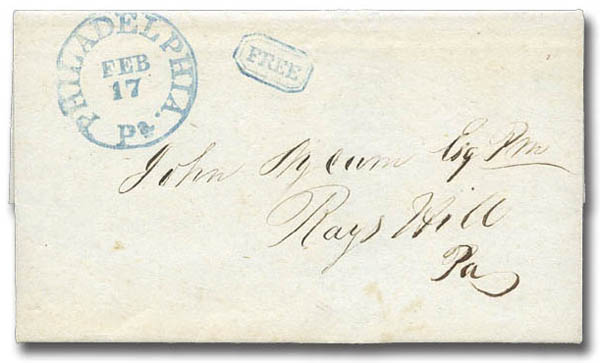 PHILADELPHIA. Pa
FEB
17
FREE
John Nycum Esq Pm
Rays Hill
Pa